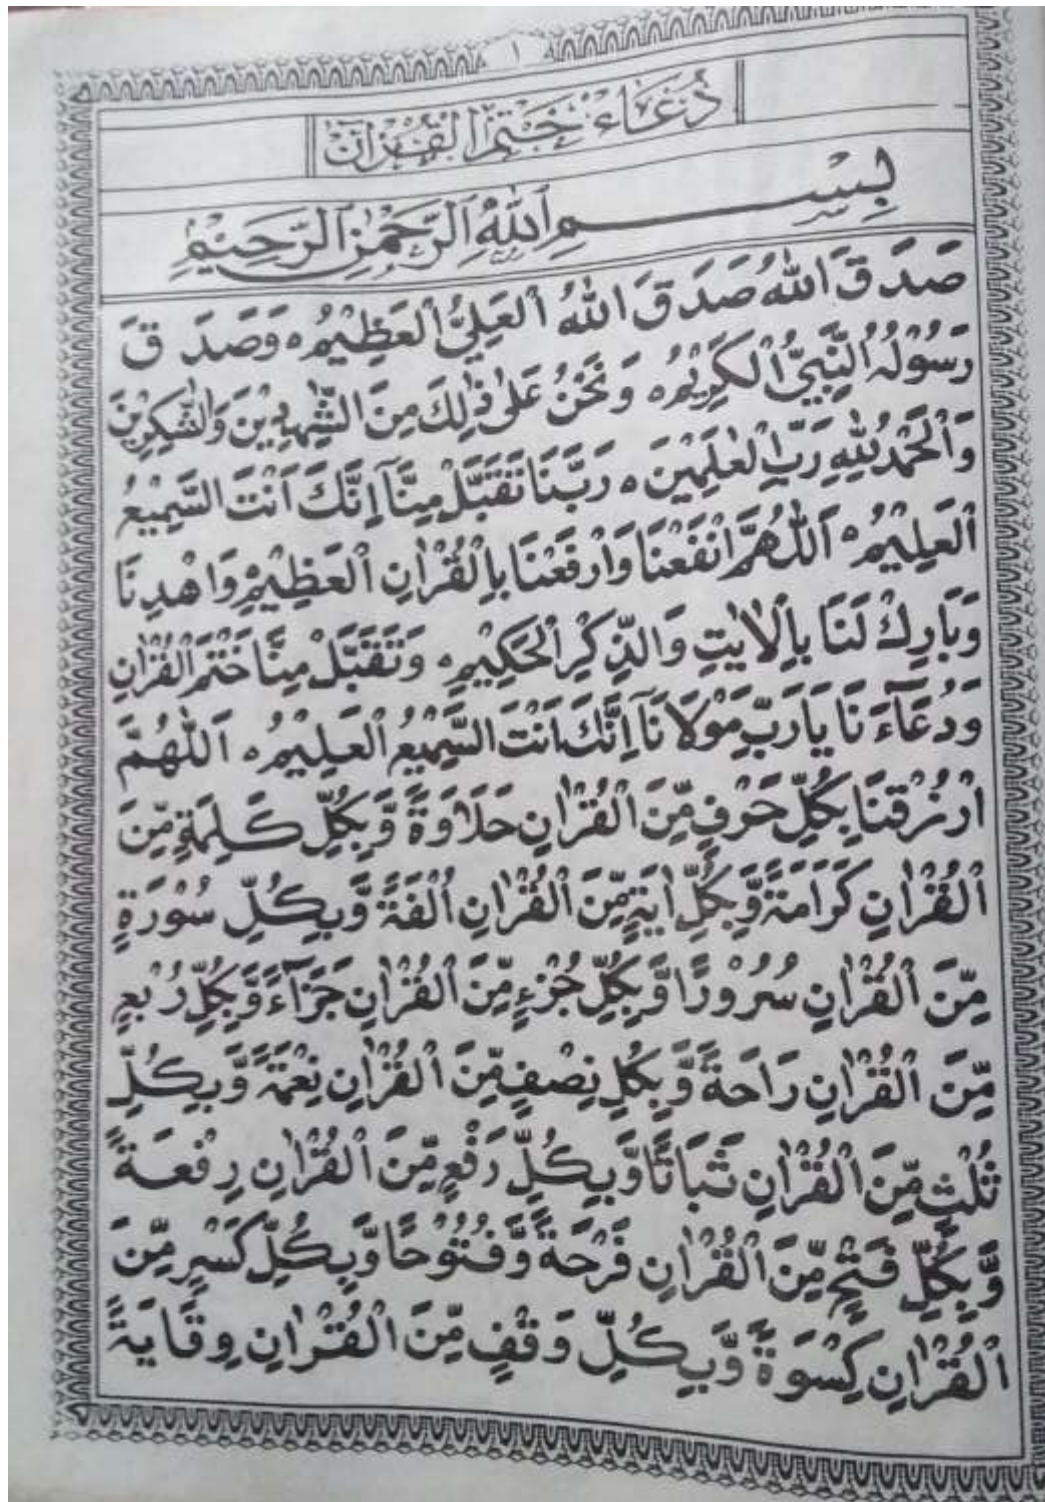 ١
دُعَاءُ خَتْمِ الْقُرْاٰنِ
بِسْمِ اللّٰهِ الرَّحْمٰنِ الرَّحِيْمِ
صَدَقَ اللّٰهُ صَدَقَ اللّٰهُ الْعَلِيُّ الْعَظِيْمُ ه وَصَدَقَ
رَسُوْلُهُ النَّبِيُّ الْكَرِيْمُ ه وَنَحْنُ عَلٰى ذٰلِكَ مِنَ الشّٰهِدِيْنَ وَالشّٰكِرِيْنَ
وَالْحَمْدُ لِلّٰهِ رَبِّ الْعٰلَمِيْنَ ه رَبَّنَا تَقَبَّلْ مِنَّآ اِنَّكَ اَنْتَ السَّمِيْعُ
الْعَلِيْمُ ه اَللّٰهُمَّ انْفَعْنَا وَارْفَعْنَا بِالْقُرْاٰنِ الْعَظِيْمِ وَاهْدِنَا
وَبَارِكْ لَنَا بِالْاٰيٰتِ وَالذِّكْرِ الْحَكِيْمِ ه وَتَقَبَّلْ مِنَّا خَتْمَ الْقُرْاٰنِ
وَدُعَآءَنَا يَا رَبِّ مَوْلَانَآ اِنَّكَ اَنْتَ السَّمِيْعُ الْعَلِيْمُ ه اَللّٰهُمَّ
ارْزُقْنَا بِكُلِّ حَرْفٍ مِّنَ الْقُرْاٰنِ حَلَاوَةً وَّبِكُلِّ كَلِمَةٍ مِّنَ
الْقُرْاٰنِ كَرَامَةً وَّبِكُلِّ اٰيَةٍ مِّنَ الْقُرْاٰنِ اُلْفَةً وَّبِكُلِّ سُوْرَةٍ
مِّنَ الْقُرْاٰنِ سُرُوْرًا وَّبِكُلِّ جُزْءٍ مِّنَ الْقُرْاٰنِ جَزَآءً وَّبِكُلِّ رُبْعٍ
مِّنَ الْقُرْاٰنِ رَاحَةً وَّبِكُلِّ نِصْفٍ مِّنَ الْقُرْاٰنِ نِعْمَةً وَّبِكُلِّ
ثُلُثٍ مِّنَ الْقُرْاٰنِ ثَبَاتًا وَّبِكُلِّ رَفْعٍ مِّنَ الْقُرْاٰنِ رِفْعَةً
وَّبِكُلِّ فَتْحٍ مِّنَ الْقُرْاٰنِ فَرْحَةً وَّفُتُوْحًا وَّبِكُلِّ كَسْرٍ مِّنَ
الْقُرْاٰنِ كِسْوَةً وَّبِكُلِّ وَقْفٍ مِّنَ الْقُرْاٰنِ وِقَايَةً